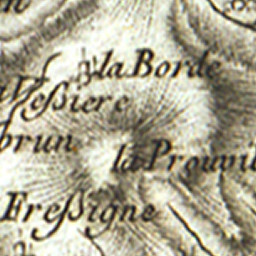 la Borde
Veßiere
brun
la Prouvil
Freßigne